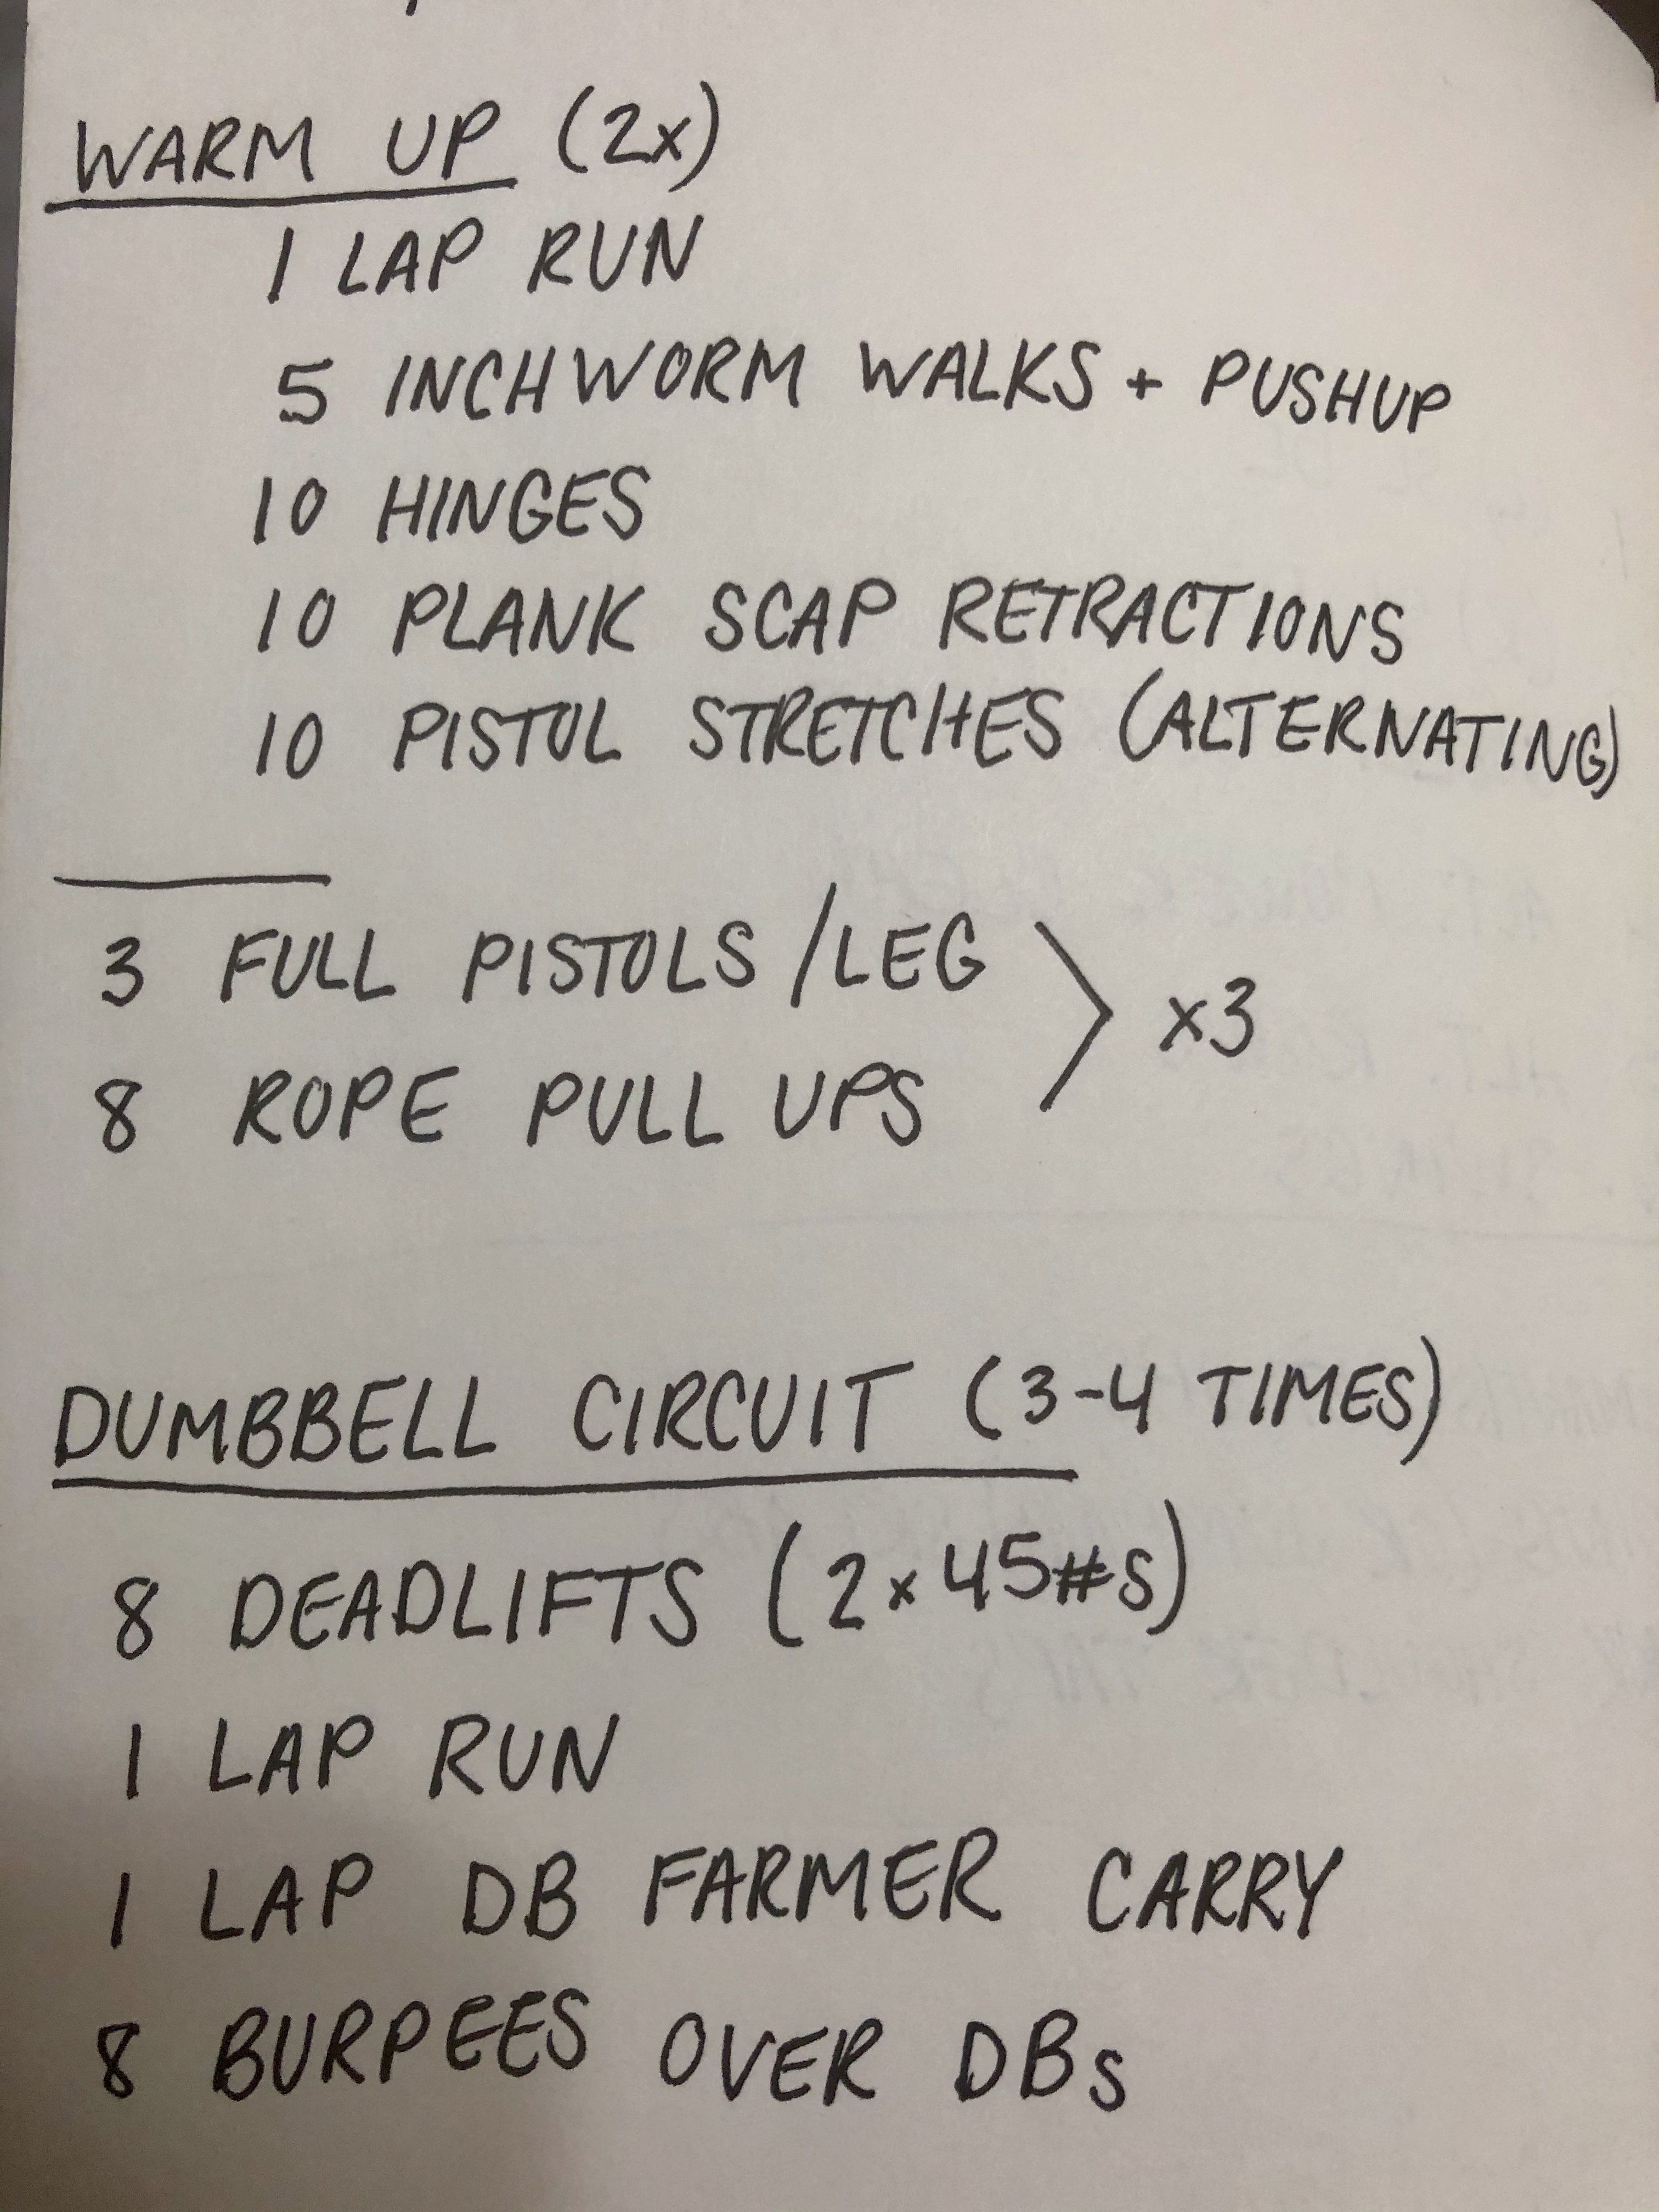 WARM UP (2x)
1 LAP RUN
5 INCHWORM WALKS + PUSHUP
10 HINGES
10 PLANK SCAP RETRACTIONS
10 PISTOL STRETCHES (ALTERNATING)
3 FULL PISTOLS /LEG
x3
8 ROPE PULL UPS
DUMBBELL CIRCUIT (3-4 TIMES)
8 DEADLIFTS (2x45#s)
1 LAP RUN
1 LAP DB FARMER CARRY
8 BURPEES OVER DBs